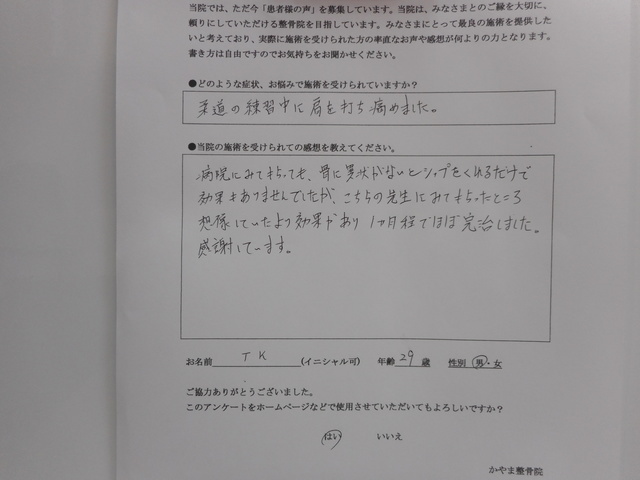 当院では、ただ今「患者様の声」を募集しています。当院は、みなさまとのご縁を大切に、
頼りにしていただける整骨院を目指しています。みなさまにとって最良の施術を提供した
いと考えており、実際に施術を受けられた方の率直なお声や感想が何よりの力となります。
書き方は自由ですのでお気持ちをお聞かせください。
●どのような症状、お悩みで施術を受けられていますか?
柔道の練習中に肩を打ち痛めました。
●当院の施術を受けられての感想を教えてください。
病院にみてもらっても、骨に異状がないとシップをくれるだけで
効果もありませんでしたが、こちらの先生にみてもらったところ
想像していたより効果があり1ヶ月程でほぼ完治しました。
感謝しています。
お名前 TK (イニシャル可) 年齢 29 歳 性別 男・女
ご協力ありがとうございました。
このアンケートをホームページなどで使用させていただいてもよろしいですか?
はい いいえ
かやま整骨院